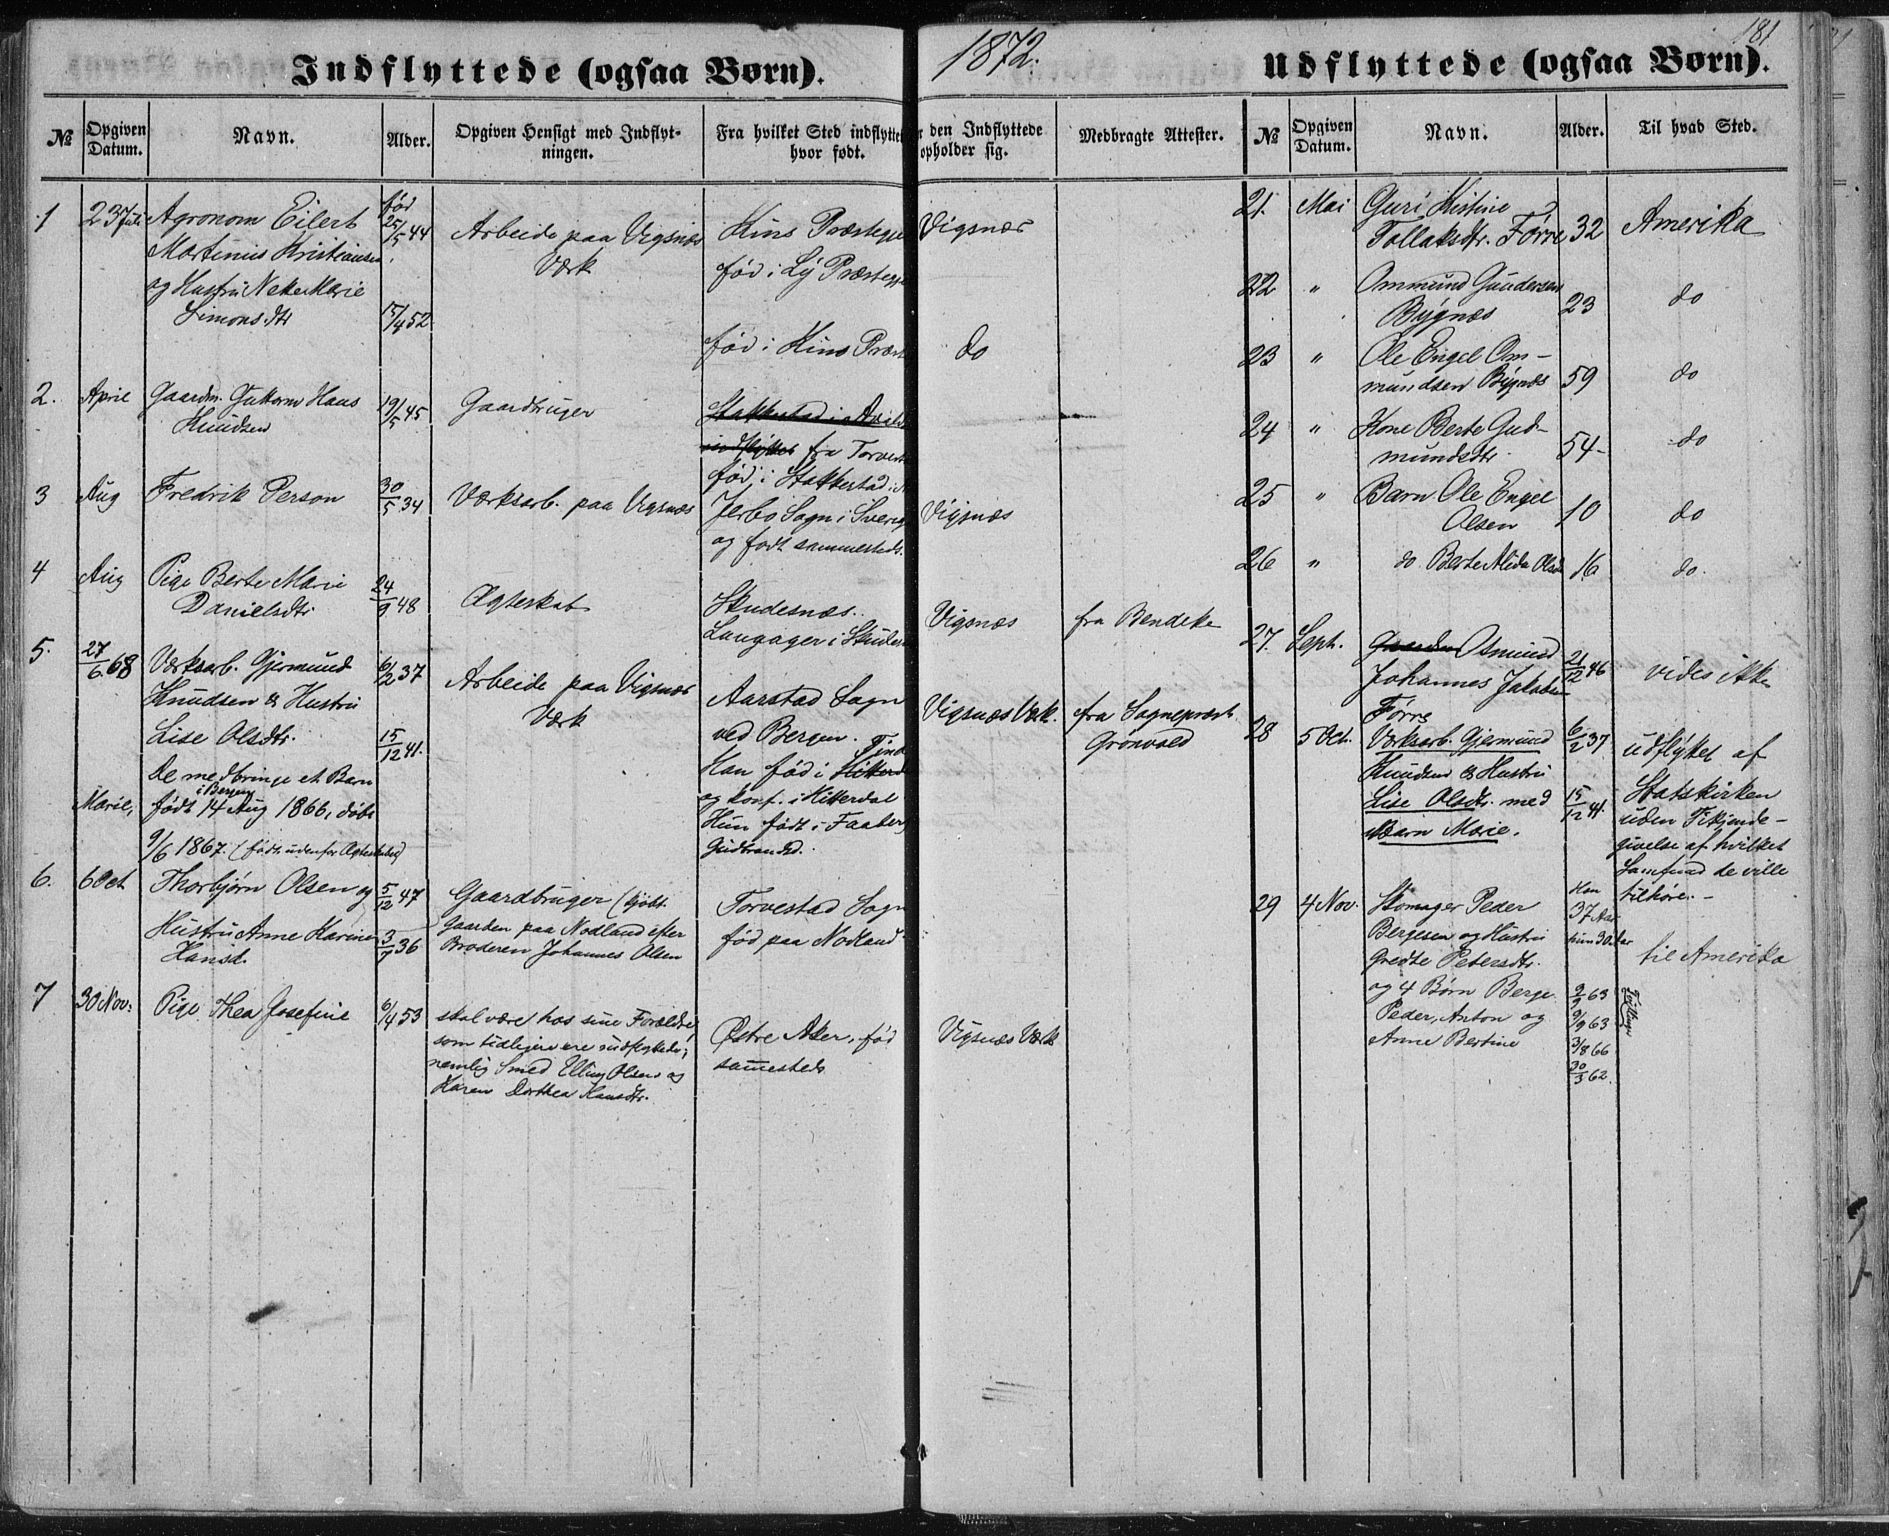 181
1872.
Indflyttede (ogsaa Børn).
Udflyttede (ogsaa Børn).
№
Opgiven Datum.
Navn.
Alder.
Opgiven Hensigt med Indflyt-
ningen.
Fra hvilket Sted indflyttet
hvor født.
den Indflyttede
opholder sig.
Medbragte Attester.
№
Opgiven Datum.
Navn.
Alder.
Til hvad Sted.
1
23 Juli
Agronom Eilert
Martinius Kristiansen
og Hustru Marie
Simonsdtr
fød
25/5 44
15/4 52
Arbeide paa Vigsnæs
Værk
Kins Præstegj
fød i Præstegj
fød i Kins Præst
Vigsnæs
do
2.
April
Gaardm. Guttorm Hans
Knudsen
19/5 45
Gaardbruger
Stakkestad i
indflyttet fra Torvest
fød i Stakkestad i
3
Aug
Fredrik Person
30/5 34
Værksarb. paa Vigsnæs
Jerbo Sogn i Sverig
og født sammesteds.
Vigsnæs
4
Aug
Pige Berte Marie
Danielsdtr.
24/9 48
Ægteskab
Skudesnæs.
Langager i Skudesn
Vigsnæs
fra Bendeke
5.
27/6 68
Værksarb. Gjermund
Knudsen & Hustru
Lise Olsdtr.
De medbringe et Barn
i Bergen
Marie, født 14 Aug 1866, døbt
9/6 1867. (født udenfor Ægteskabet)
6/2 37
15/12 41.
Arbeide paa Vigsnæs
Værk
Aarstad Sogn
ved Bergen.
Han fød i
og konf. i Hitterdal
Hun født i Faaberg
Gudbrandsd.
Vigsnæs Værk.
fra Sognepræst
Grönvold
6.
6 Oct
Thorbjørn Olsen og
Hustru Anne Karine
Hansd.
5/12 47
3/7 36
Gaardbruger (kjöbt
Gaarden paa Nodland efter
Broderen Johannes Olsen
Torvestad Sogn
fød paa Nodland
7
30 Nov.
Pige Thea Josefine
6/4 53
skal være hos sine Forældre,
som tidligere ere indflyttede,
nemlig Smed Elling Olsen og
Karen Dorthea Hansdtr.
Østre Aker, fød
sammesteds
Vigsnæs Værk
21.
Mai
Guri Kistine
Tollaksdtr. Førre
32
Amerika
22
"
Ommund Gundersen
Bygnæs
23
do
23
"
Ole Engel Om-
mundsen Bygnæs
59
do
24
"
Kone Berte Gud-
mundsdtr.
54
do
25
"
Barn Ole Engel
Olsen
10
do
26
"
do Berte Alida Olsdt
16
do.
27.
Sept.
Gaardm Osmund
Johannes Jakobsen
Førre
21/12 46
vides ikke
28
5 Oct.
Værksarb. Gjermund
Knudsen & Hustru
Lise Olsdtr. med
Barn Marie.
6/2 37.
15/12 41.
udflyttet af
Statskirken
uden Tilkjende-
givelse af hvilket
Samfund de ville
tilhøre.-
29
4 Nov.
Skomager Peder
Bergesen og Hustru
Gredte Petersdtr.
og 4 Børn Berge
Peder, Anton og
Anne Bertine
Han
37 Aar
hun 30 Aar
2/9 63
9/9 63
Tvillinger
3/8 66
30/3 62.
til Amerika